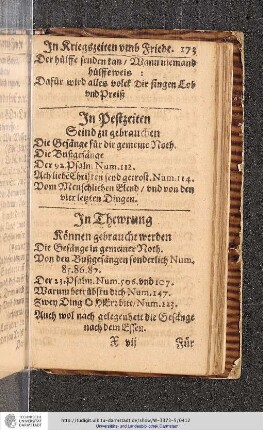 In Kriegszeiten vmb Friede. 173
Der hülffe senden kan / Wann niemand
hülffe weis :
Dafür wird alles volck dir singen Lob
vnd Preiß
In Pestzeiten
Seind zu gebrauchen
Die Gesänge für die gemeine Noth.
Die Bußgesänge
Der 92. Psalm. Num. 112.
Ach liebe Christen seyd getrost. Num. 114.
Vom Menschlichen Elend / vnd von den
vier letzten Dingen.
In Thewrung
Können gebraucht werden
Die Gesänge in gemeiner Noth.
Von den Bußgesängen sonderlich Num.
85. 86. 87.
Der 23. Psalm. Num. 506. vnd 107.
Warumb betrübstu dich Num. 147.
Zwey Ding O HErr bitt / Num. 123.
Auch wol nach gelegenheit die Gesänge
nach dem Essen.
X vij Für
Universitäts- und Landesbibliothek Darmstadt